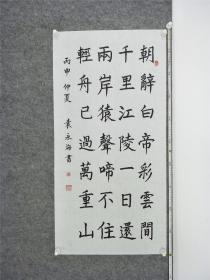 朝辭白帝彩雲間
千里江陵一日還
兩岸猿聲啼不住
輕舟已過萬重山
丙申仲夏 袁永海書